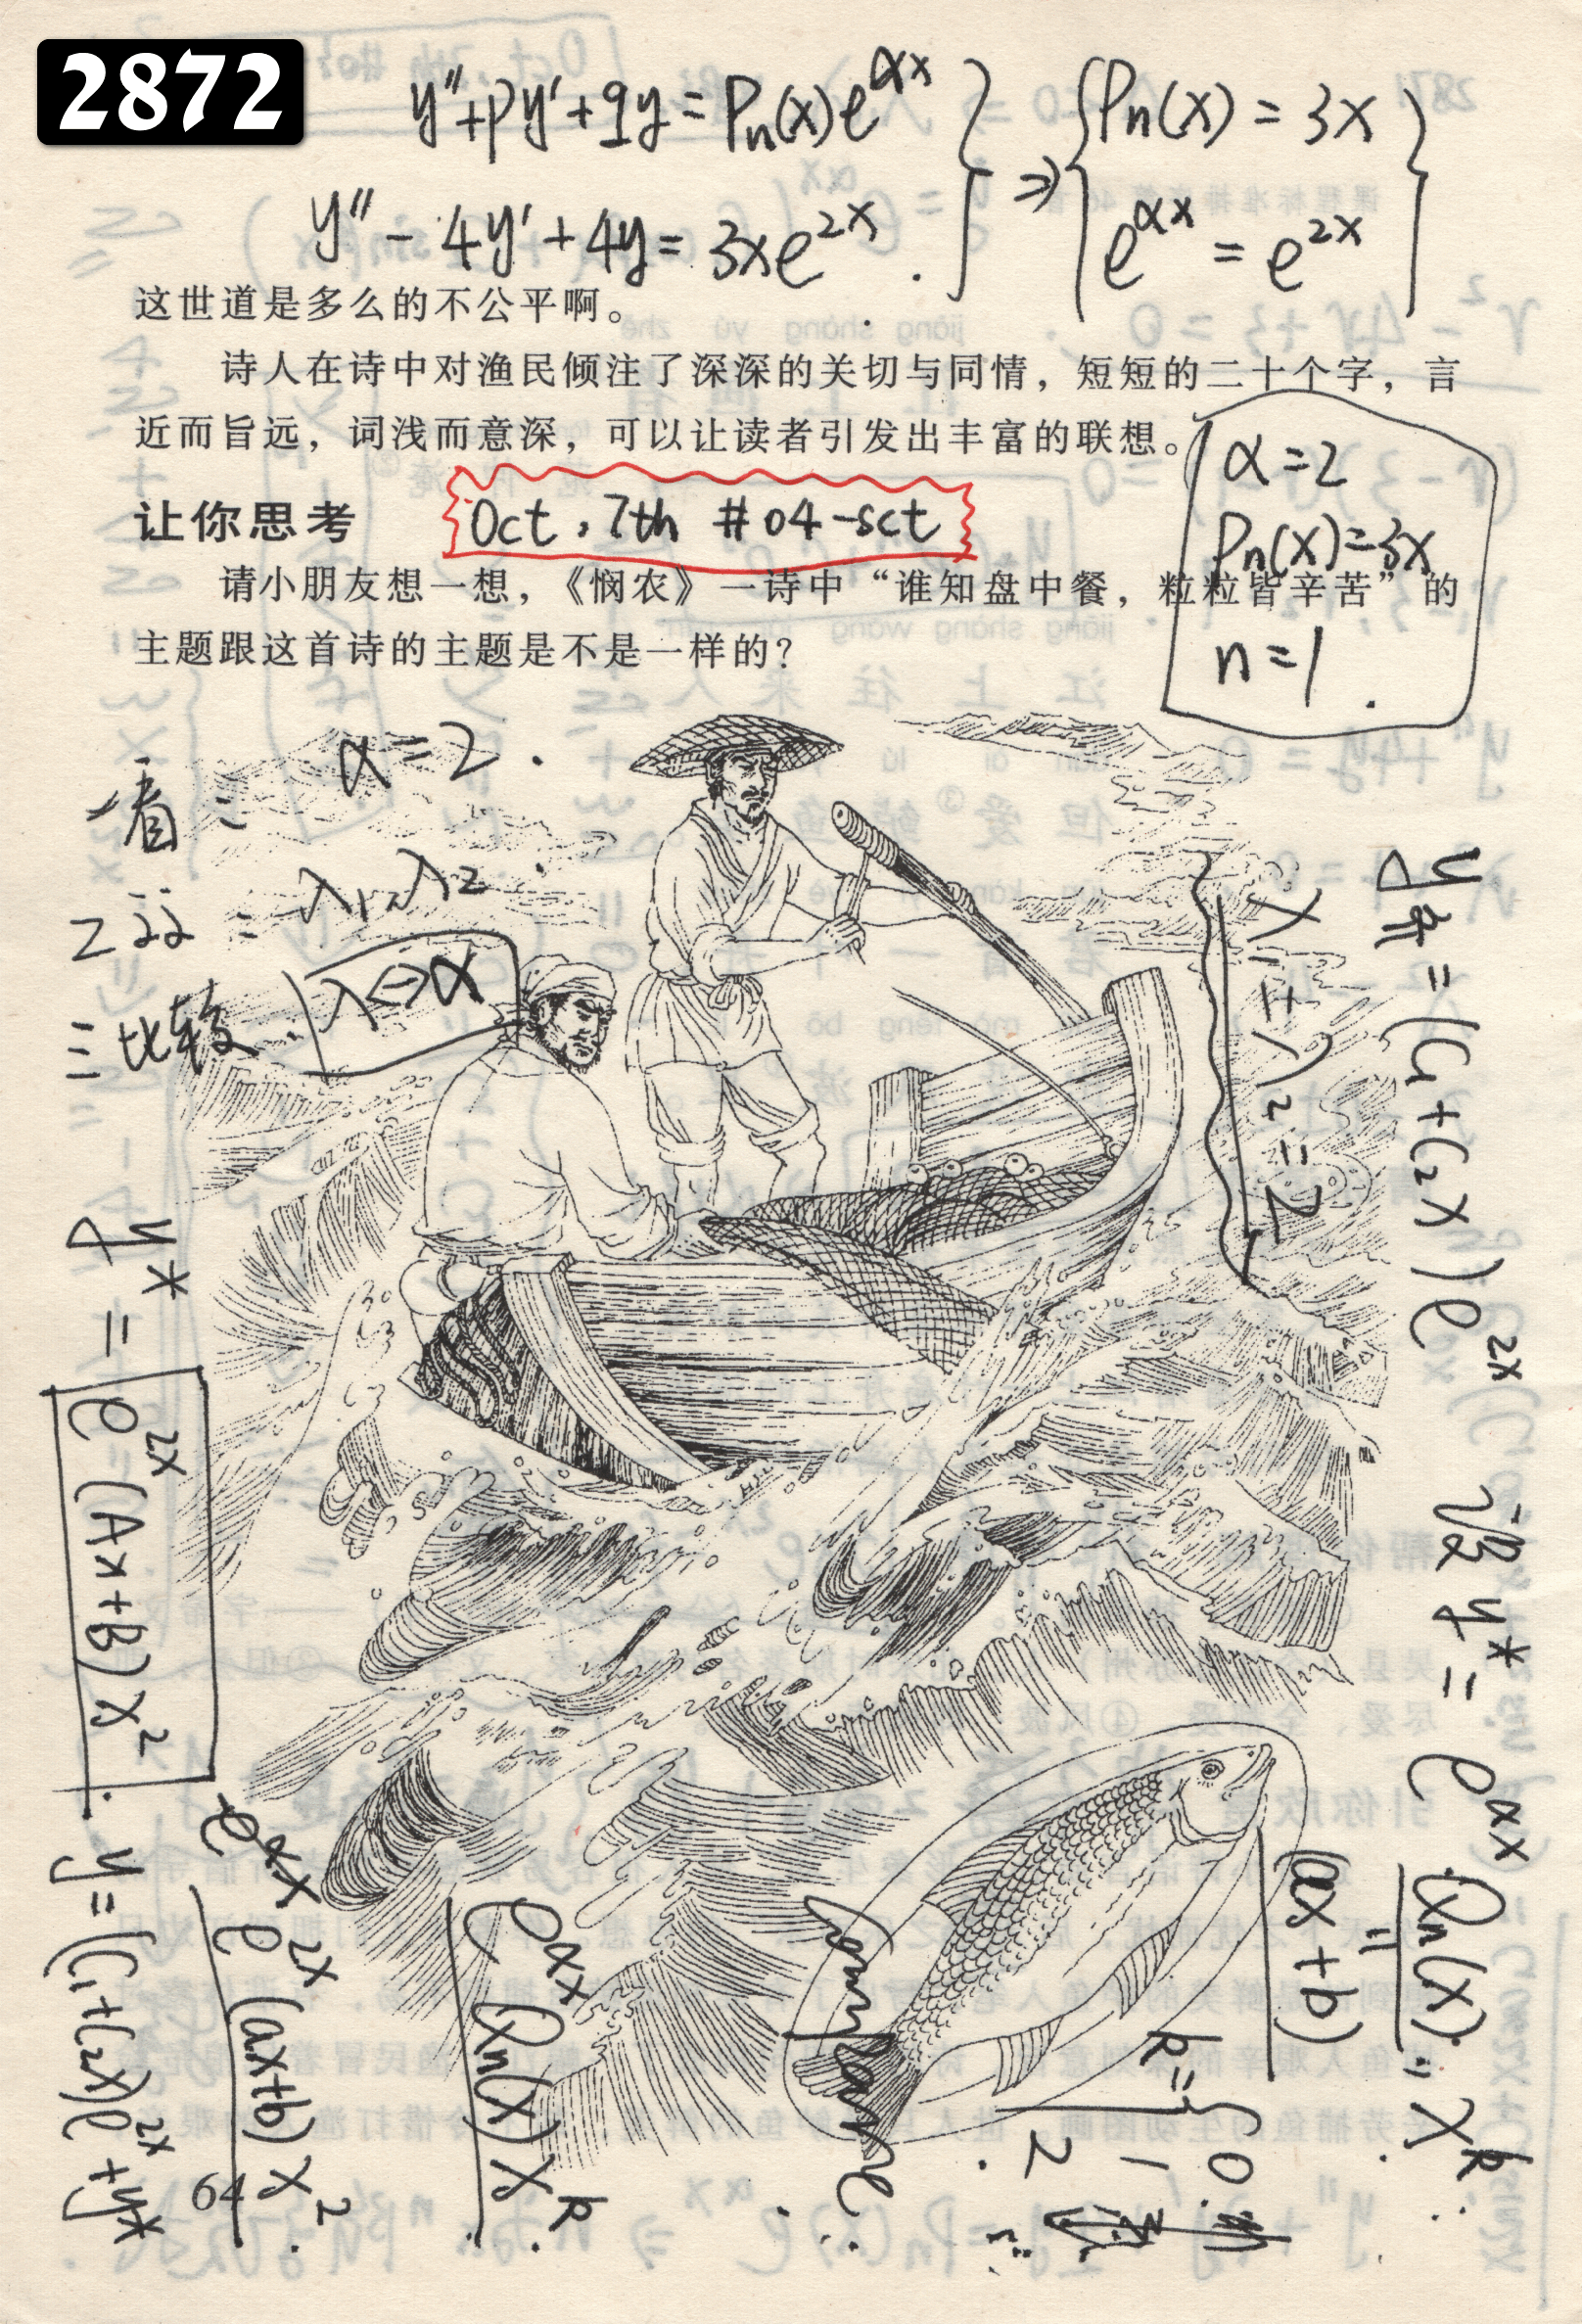 2872
y''+py'+qy=Pn(x)e^{αx} } ⇒ { Pn(x)=3x }
y''-4y'+4y=3xe^{2x}. e^{αx}=e^{2x}
这世道是多么的不公平啊。
诗人在诗中对渔民倾注了深深的关切与同情，短短的二十个字，言
近而旨远，词浅而意深，可以让读者引发出丰富的联想。
α=2
Pn(x)=3x
n=1.
让你思考
Oct, 7th #04-sct
请小朋友想一想，《悯农》一诗中“谁知盘中餐，粒粒皆辛苦”的
主题跟这首诗的主题是不是一样的？
一看: α=2.
二: λ1, λ2.
三比较: λ<=>α
λ1=λ2=2
y齐=(C1+C2x)e^{2x}
设y*=e^{αx}·Qn(x)·x^k.
(ax+b)
k={0.
1
2.
Compare:
e^{αx}Qn(x)x^k.
e^{αx}
e^{2x}(ax+b)x^2.
y*=e^{2x}(Ax+B)x^2.
y=(C1+C2x)e^{2x}+y*
64